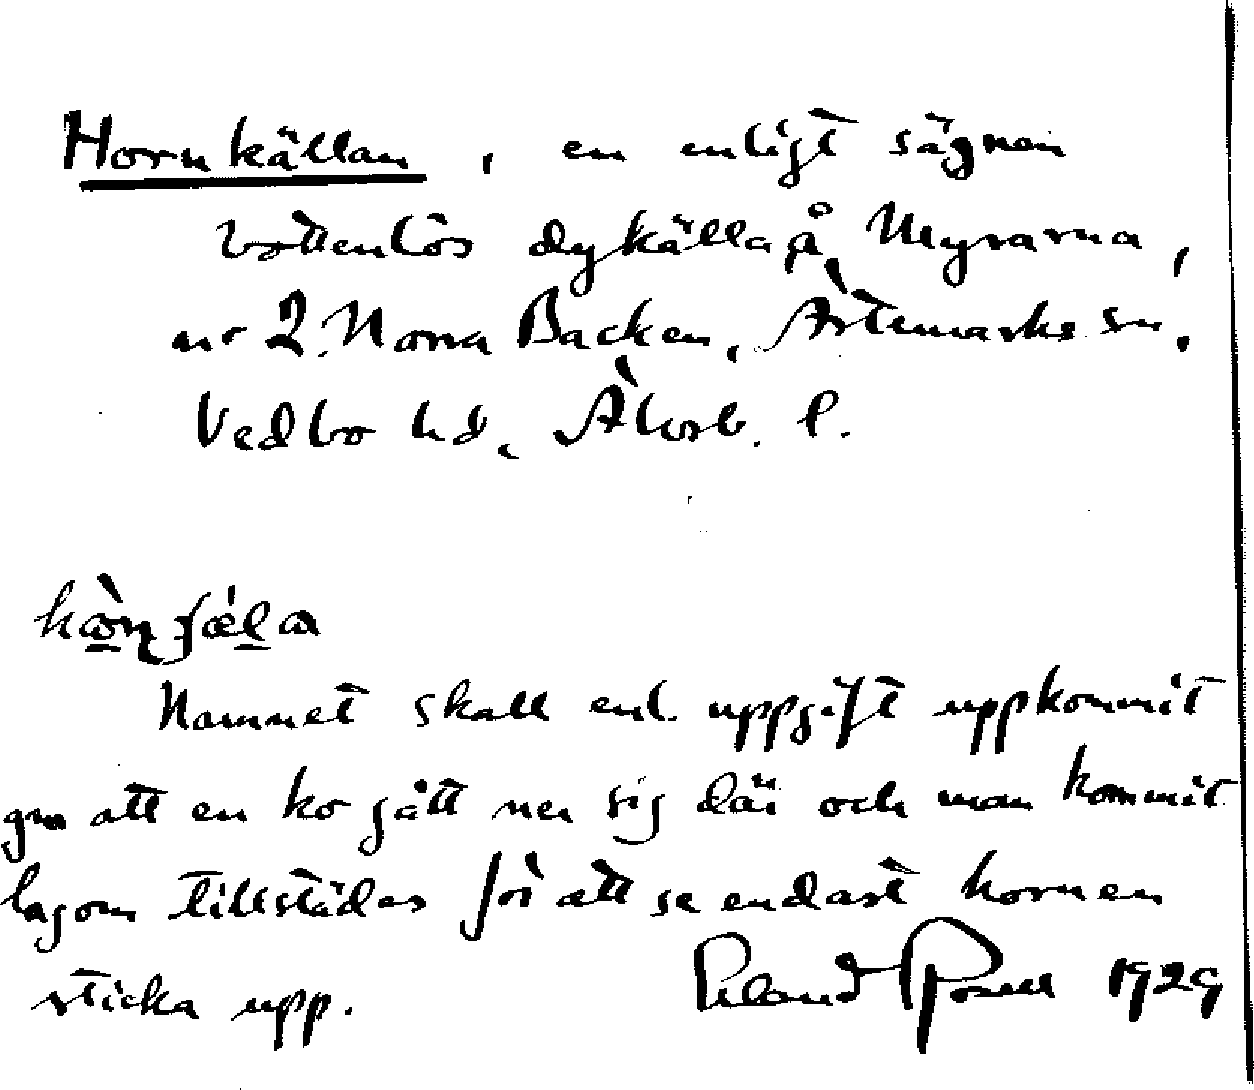 Hornkällan, en enligt sägnen
bottenlös dykälla å Myrarna,
nr 2. Norra Backen, Ärtemarks sn.
Vedbo hd, Älvsb. l.
Namnet skall enl. uppgift uppkommit
gnm att en ko gått ner sig där och man kommit
lagom tillstädes för att se endast hornen
sticka upp. 1929